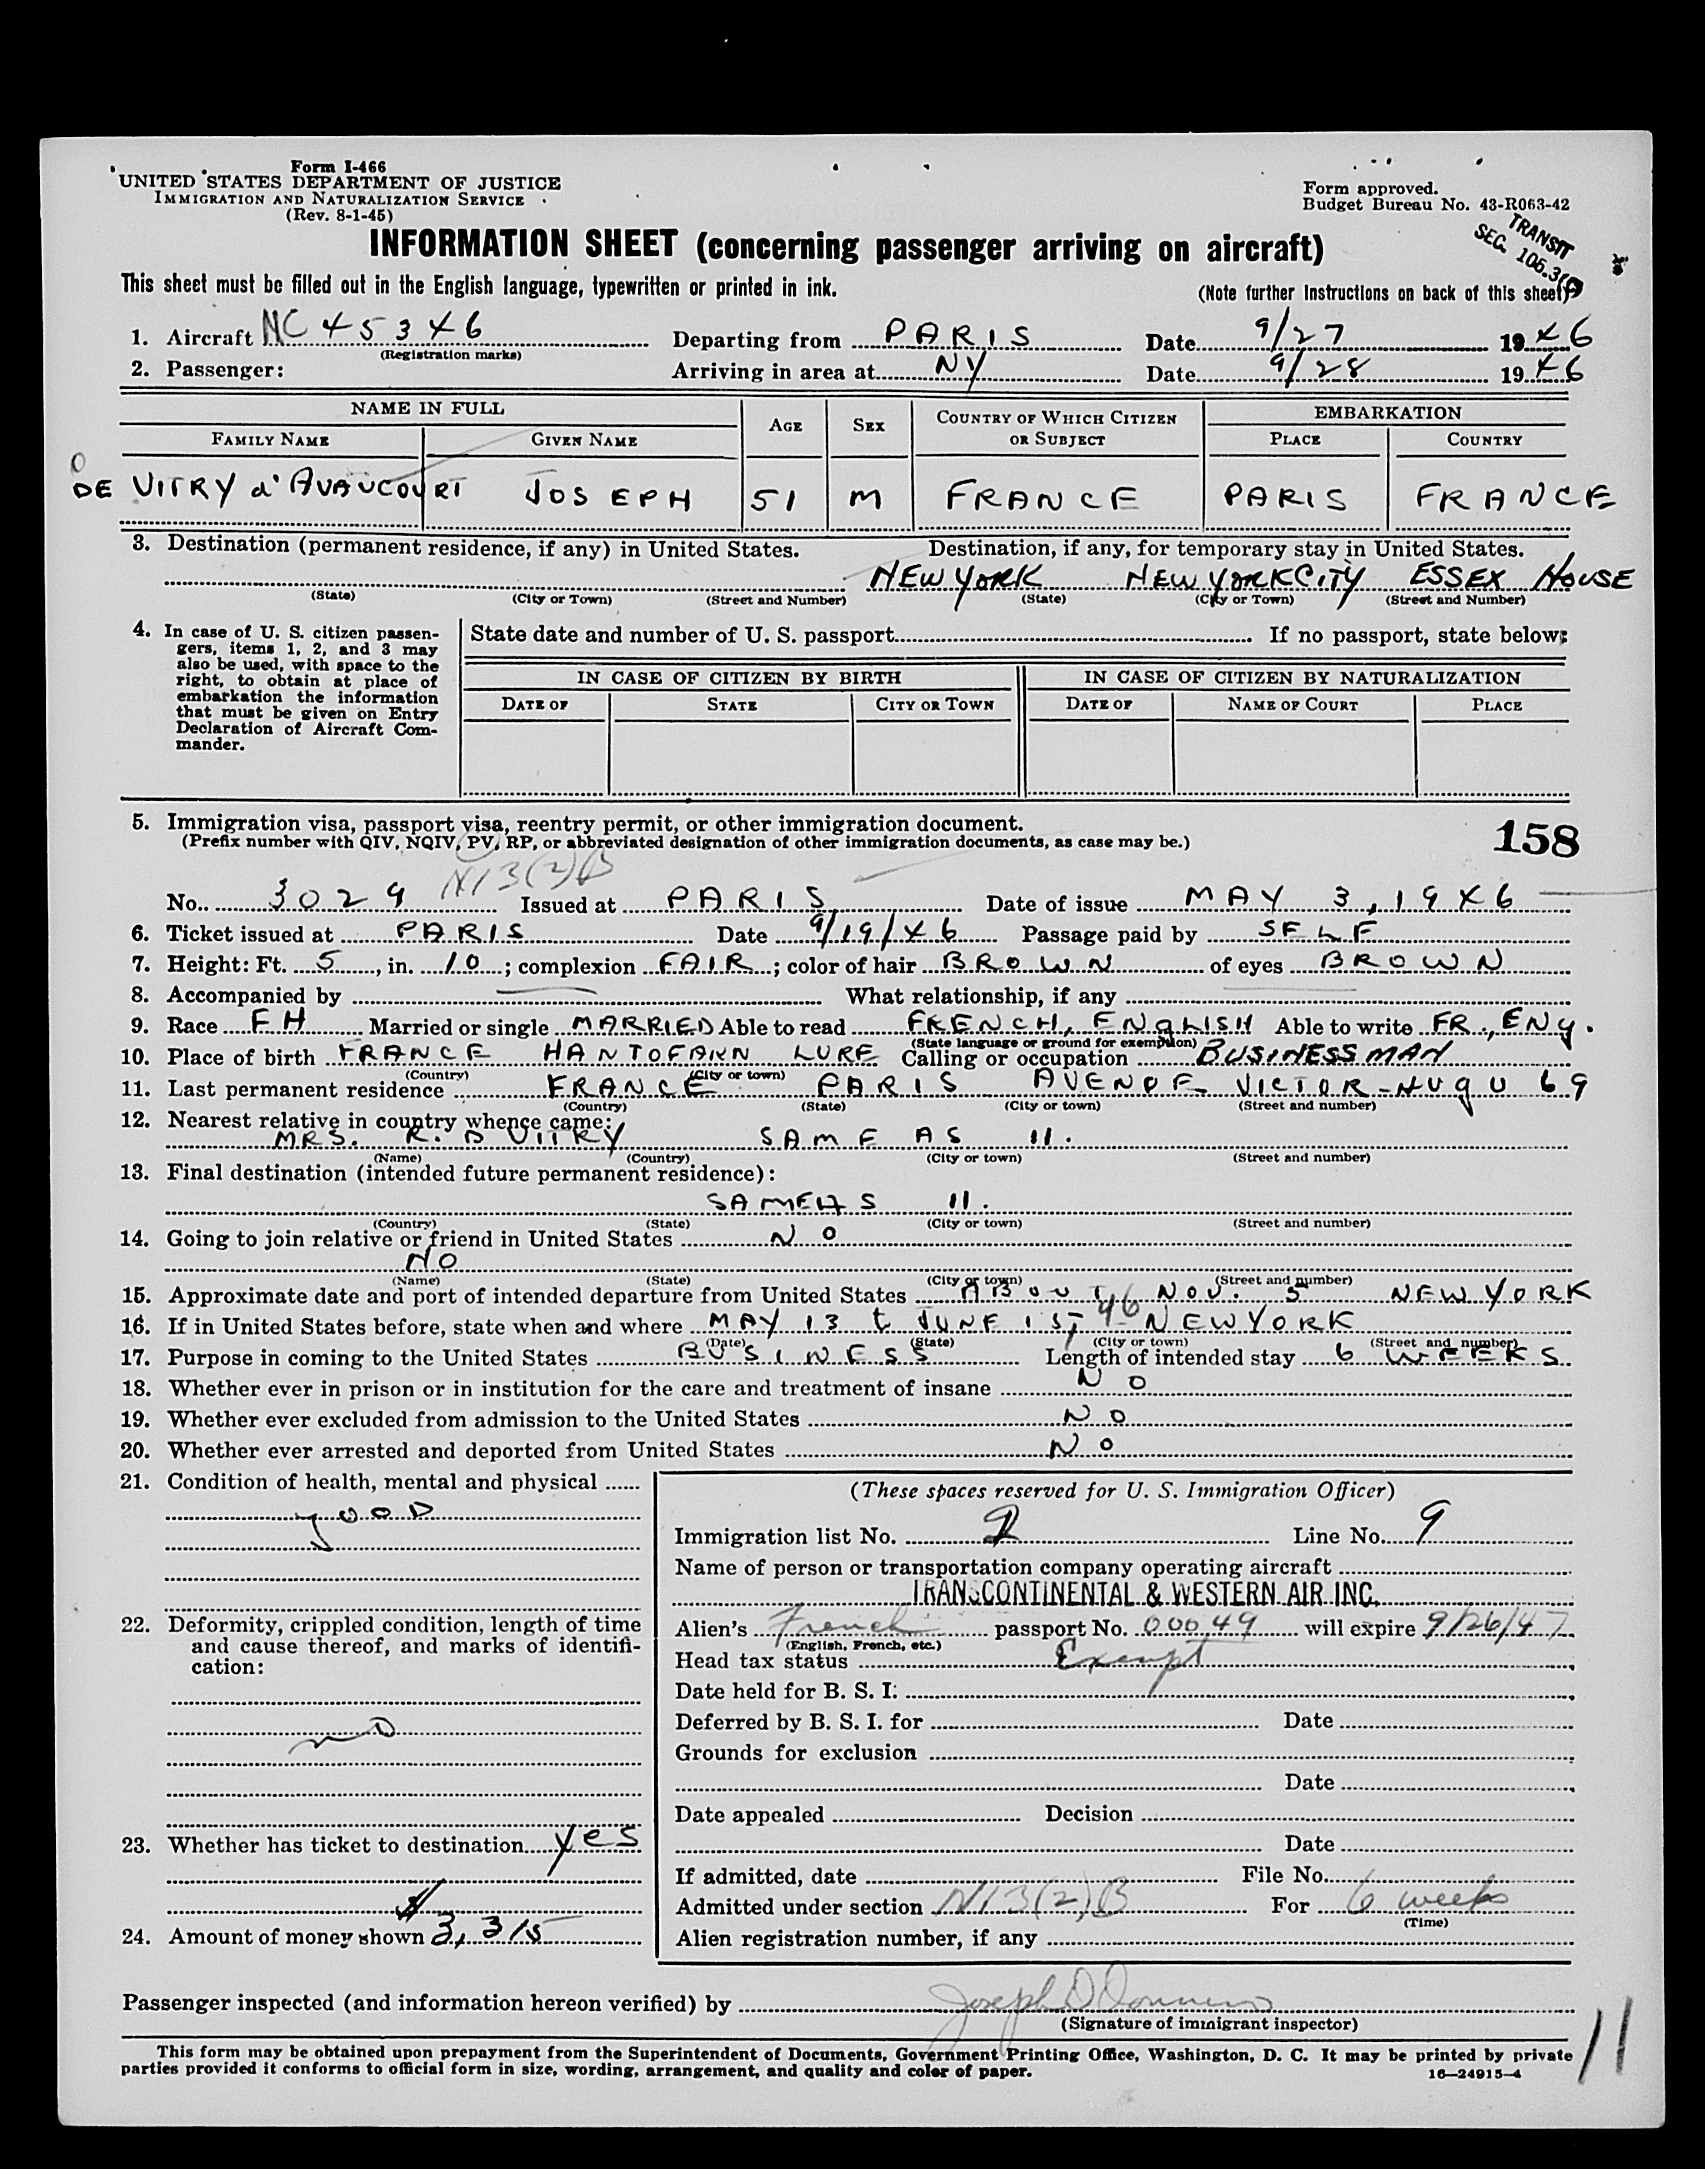 Form I-466
UNITED STATES DEPARTMENT OF JUSTICE
IMMIGRATION AND NATURALIZATION SERVICE
(Rev. 8-1-45)
Form approved.
Budget Bureau No. 43-R063-42
TRANSIT
SEC. 105.3(
INFORMATION SHEET (concerning passenger arriving on aircraft)
This sheet must be filled out in the English language, typewritten or printed in ink.
(Note further instructions on back of this sheet)
1. Aircraft NC 45346 Departing from PARIS Date 9/27 1946
(Registration marks)
2. Passenger: Arriving in area at NY Date 9/28 1946
NAME IN FULL AGE SEX COUNTRY OF WHICH CITIZEN OR SUBJECT EMBARKATION
FAMILY NAME GIVEN NAME PLACE COUNTRY
DE VITRY d'AVAUCOURT JOSEPH 51 M FRANCE PARIS FRANCE
3. Destination (permanent residence, if any) in United States. Destination, if any, for temporary stay in United States.
NEW YORK NEW YORK CITY ESSEX HOUSE
(State) (City or Town) (Street and Number) (State) (City or Town) (Street and Number)
4. In case of U. S. citizen passen-
gers, items 1, 2, and 3 may
also be used, with space to the
right, to obtain at place of
embarkation the information
that must be given on Entry
Declaration of Aircraft Com-
mander.
State date and number of U. S. passport If no passport, state below:
IN CASE OF CITIZEN BY BIRTH IN CASE OF CITIZEN BY NATURALIZATION
DATE OF STATE CITY OR TOWN DATE OF NAME OF COURT PLACE
5. Immigration visa, passport visa, reentry permit, or other immigration document.
(Prefix number with QIV, NQIV, PV, RP, or abbreviated designation of other immigration documents, as case may be.)
158
N13(2)B
No. 3029 Issued at PARIS Date of issue MAY 3, 1946
6. Ticket issued at PARIS Date 9/19/46 Passage paid by SELF
7. Height: Ft. 5, in. 10; complexion FAIR; color of hair BROWN of eyes BROWN
8. Accompanied by What relationship, if any
9. Race FH Married or single MARRIED Able to read FRENCH, ENGLISH Able to write FR., ENG.
(State language or ground for exemption)
10. Place of birth FRANCE LURE Calling or occupation BUSINESSMAN
(Country) (City or town)
11. Last permanent residence FRANCE PARIS AVENUE VICTOR-HUGO 69
(Country) (State) (City or town) (Street and number)
12. Nearest relative in country whence came:
MRS. R. D VITRY SAME AS 11.
(Name) (Country) (City or town) (Street and number)
13. Final destination (intended future permanent residence):
SAME AS 11.
(Country) (State) (City or town) (Street and number)
14. Going to join relative or friend in United States NO
NO
(Name) (State) (City or town) (Street and number)
15. Approximate date and port of intended departure from United States ABOUT NOV. 5 NEW YORK
16. If in United States before, state when and where MAY 13 t JUNE 1ST 46 NEW YORK
(Date) (State) (City or town) (Street and number)
17. Purpose in coming to the United States BUSINESS Length of intended stay 6 WEEKS
18. Whether ever in prison or in institution for the care and treatment of insane NO
19. Whether ever excluded from admission to the United States NO
20. Whether ever arrested and deported from United States NO
21. Condition of health, mental and physical
GOOD
22. Deformity, crippled condition, length of time
and cause thereof, and marks of identifi-
cation:
no
23. Whether has ticket to destination yes
24. Amount of money shown $3,315
(These spaces reserved for U. S. Immigration Officer)
Immigration list No. 2 Line No. 9
Name of person or transportation company operating aircraft
TRANSCONTINENTAL & WESTERN AIR INC.
Alien's French passport No. 00049 will expire 9/26/47
(English, French, etc.)
Head tax status Exempt
Date held for B. S. I:
Deferred by B. S. I. for Date
Grounds for exclusion
Date
Date appealed Decision
Date
If admitted, date File No.
Admitted under section N13(2)B For 6 weeks
(Time)
Alien registration number, if any
Passenger inspected (and information hereon verified) by Joseph
(Signature of immigrant inspector)
11
This form may be obtained upon prepayment from the Superintendent of Documents, Government Printing Office, Washington, D. C. It may be printed by private
parties provided it conforms to official form in size, wording, arrangement, and quality and color of paper.
16—24915-4